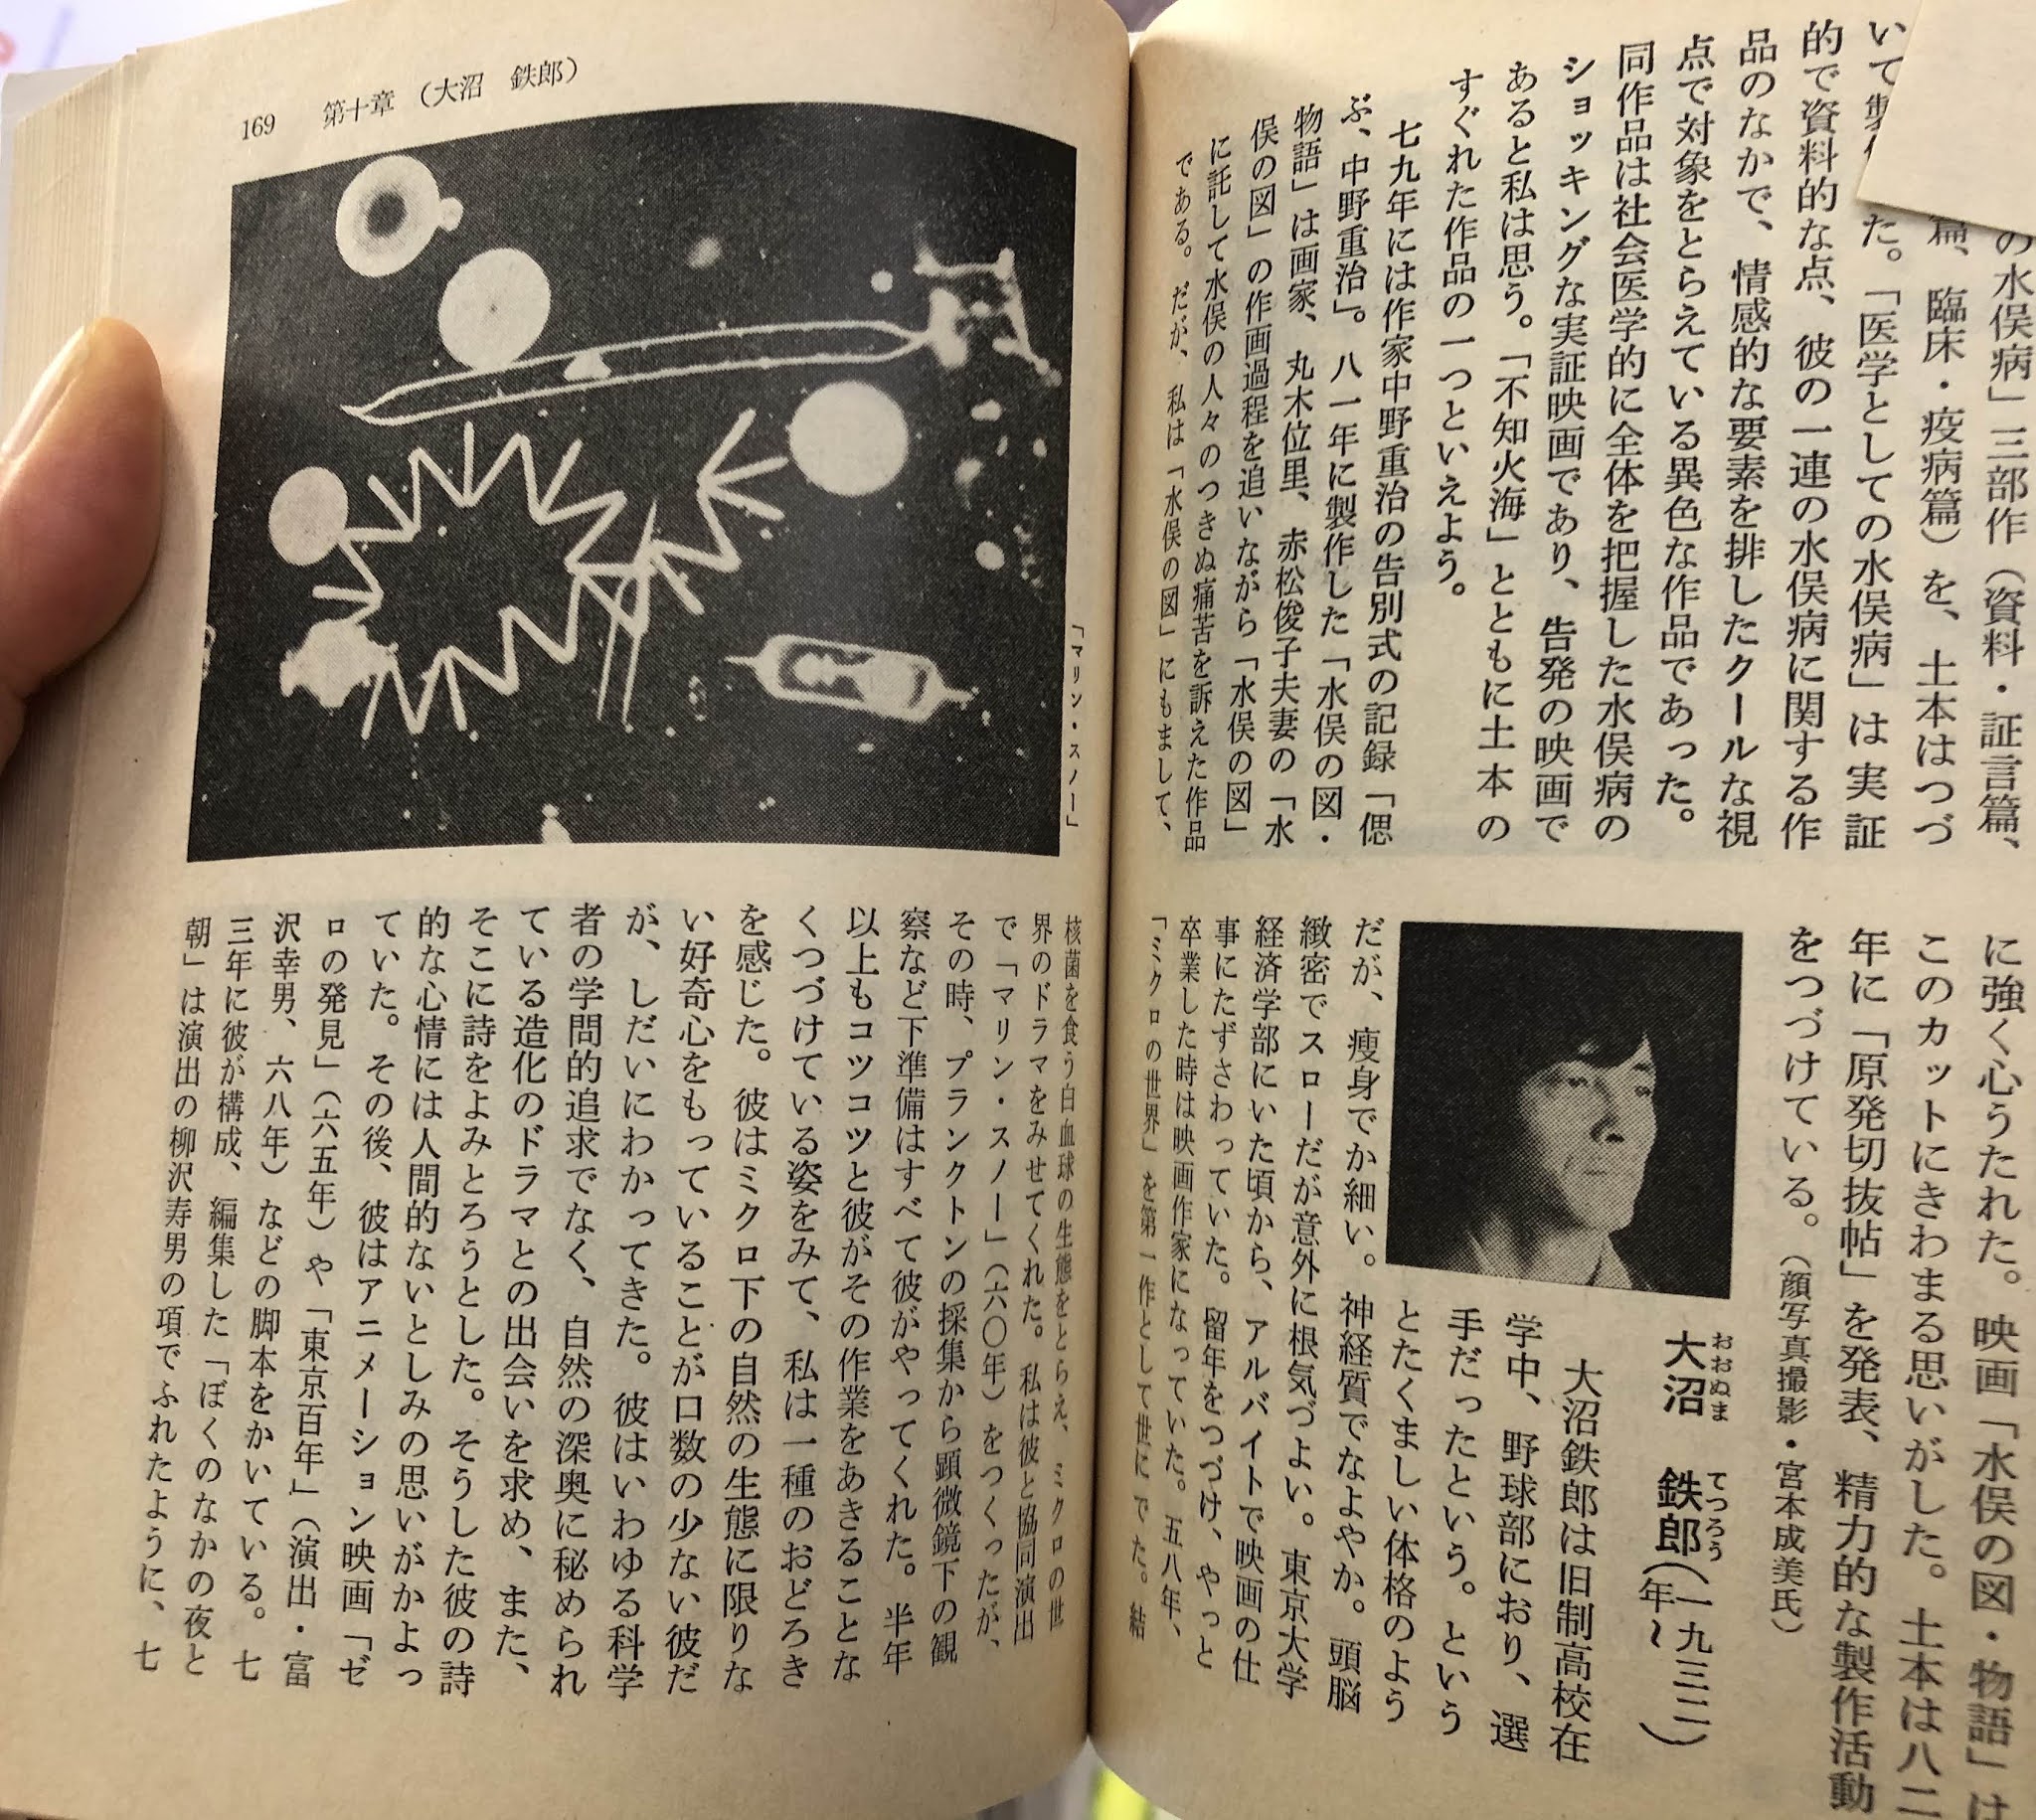 の水俣病」三部作（資料・証言篇、
篇、臨床・疫病篇）を、土本はつづ
いて製
た。「医学としての水俣病」は実証
的で資料的な点、彼の一連の水俣病に関する作
品のなかで、情感的な要素を排したクールな視
点で対象をとらえている異色な作品であった。
同作品は社会医学的に全体を把握した水俣病の
ショッキングな実証映画であり、告発の映画で
あると私は思う。「不知火海」とともに土本の
すぐれた作品の一つといえよう。
七九年には作家中野重治の告別式の記録「偲
ぶ、中野重治」。八一年に製作した「水俣の図・
物語」は画家、丸木位里、赤松俊子夫妻の「水
俣の図」の作画過程を追いながら「水俣の図」
に託して水俣の人々のつきぬ痛苦を訴えた作品
である。だが、私は「水俣の図」にもまして、
に強く心うたれた。映画「水俣の図・物語」は
このカットにきわまる思いがした。土本は八二
年に「原発切抜帖」を発表、精力的な製作活動
をつづけている。（顔写真撮影・宮本成美氏）
大沼 鉄郎（一九三二年〜）
おおぬま てつろう
大沼鉄郎は旧制高校在
学中、野球部におり、選
手だったという。という
とたくましい体格のよう
だが、痩身でか細い。神経質でなよやか。頭脳
緻密でスローだが意外に根気づよい。東京大学
経済学部にいた頃から、アルバイトで映画の仕
事にたずさわっていた。留年をつづけ、やっと
卒業した時は映画作家になっていた。五八年、
「ミクロの世界」を第一作として世にでた。結
169 第十章（大沼 鉄郎）
「マリン・スノー」
核菌を食う白血球の生態をとらえ、ミクロの世
界のドラマをみせてくれた。私は彼と協同演出
で「マリン・スノー」（六〇年）をつくったが、
その時、プランクトンの採集から顕微鏡下の観
察など下準備はすべて彼がやってくれた。半年
以上もコツコツと彼がその作業をあきることな
くつづけている姿をみて、私は一種のおどろき
を感じた。彼はミクロ下の自然の生態に限りな
い好奇心をもっていることが口数の少ない彼だ
が、しだいにわかってきた。彼はいわゆる科学
者の学問的追求でなく、自然の深奥に秘められ
ている造化のドラマとの出会いを求め、また、
そこに詩をよみとろうとした。そうした彼の詩
的な心情には人間的ないとしみの思いがかよっ
ていた。その後、彼はアニメーション映画「ゼ
ロの発見」（六五年）や「東京百年」（演出・富
沢幸男、六八年）などの脚本をかいている。七
三年に彼が構成、編集した「ぼくのなかの夜と
朝」は演出の柳沢寿男の項でふれたように、七